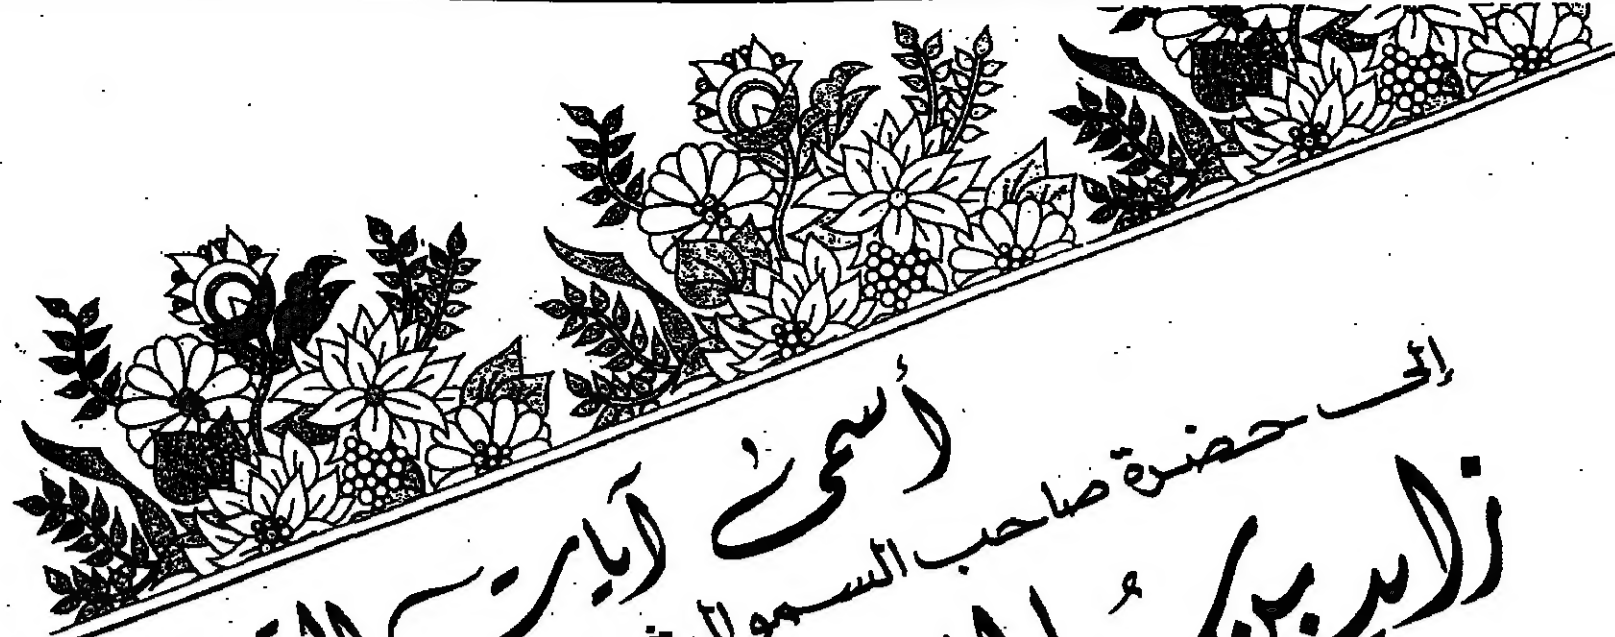 أسمى آيات
إلى حضرة صاحب السمو
زايد بن